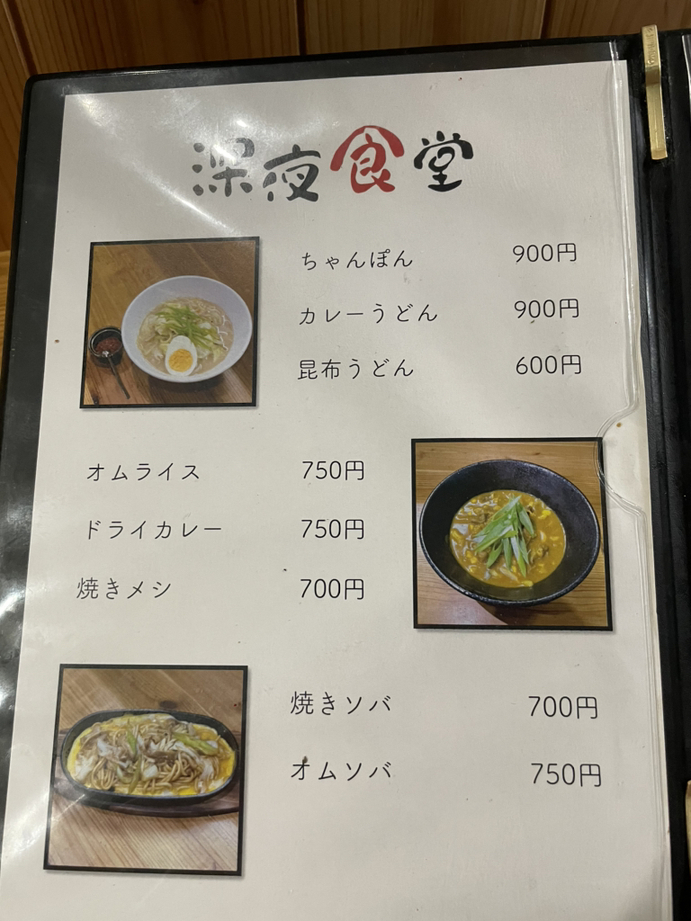 深夜食堂
ちゃんぽん 900円
カレーうどん 900円
昆布うどん 600円
オムライス 750円
ドライカレー 750円
焼きメシ 700円
焼きソバ 700円
オムソバ 750円